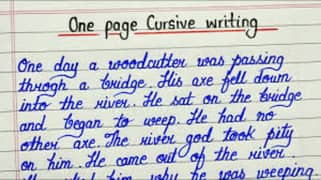 One page Cursive writing
One day a woodcutter was passing
throgh a bridge. His axe fell down
into the river. He sat on the bridge
and began to weep. He had no
other axe. The river god took pity
on him. He came out of the river.
him why he was weeping.